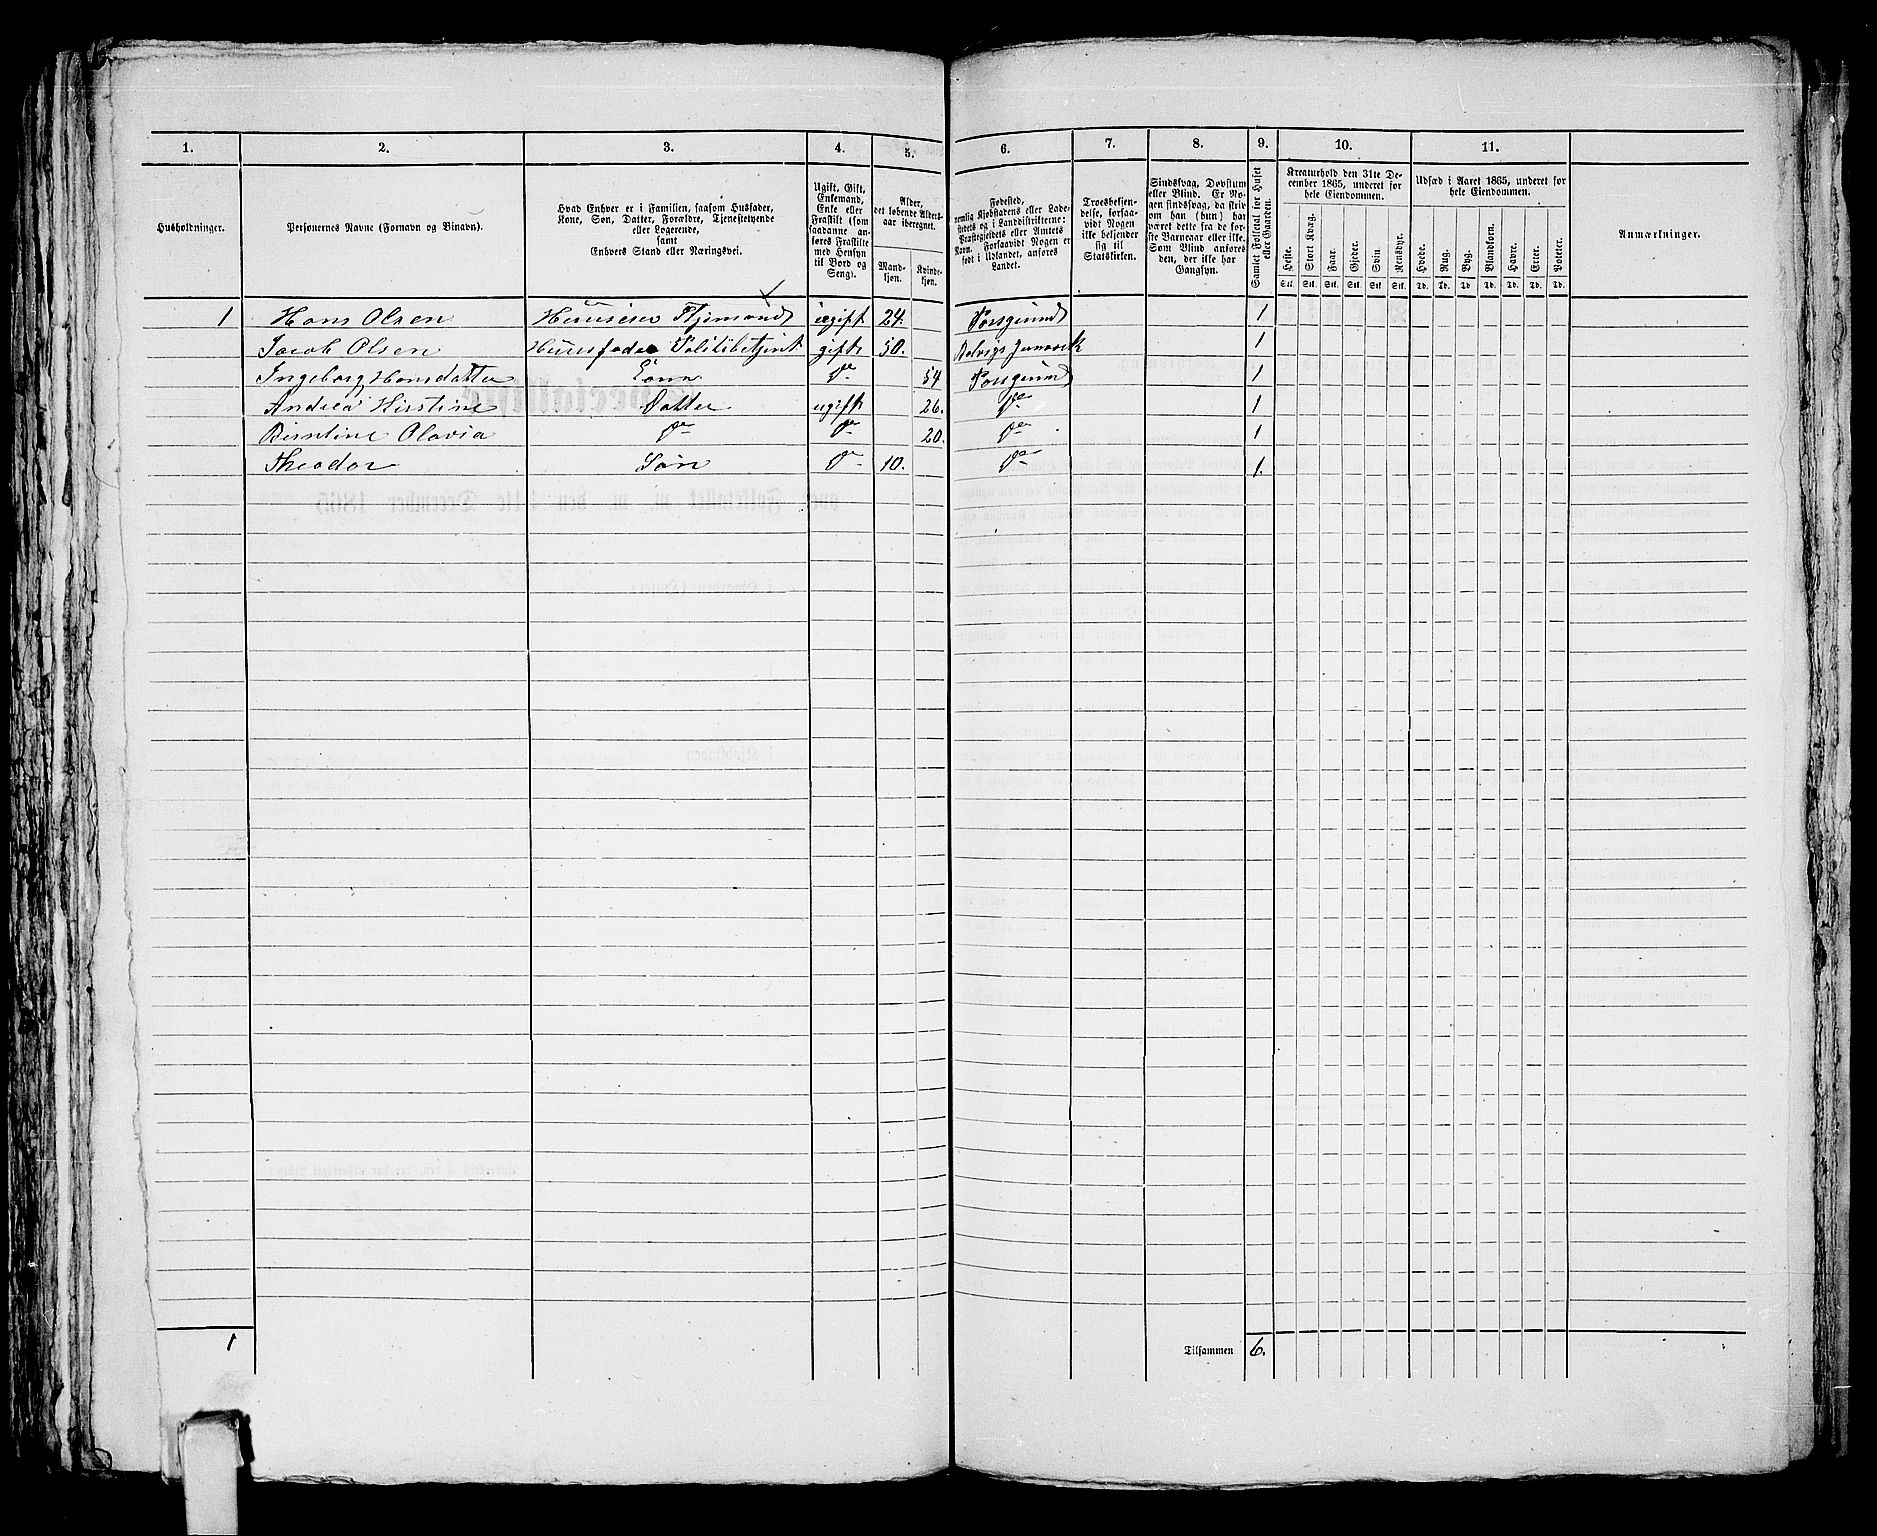 1. 2. 3. 4. 5. 6. 7. 8. 9. 10. 11.
Husholdninger.
Personernes Navne (Fornavn og Binavn).
Hvad Enhver er i Familien, saasom Husfader,
Kone, Søn, Datter, Forældre, Tjenestetyende
eller Logerende,
samt
Enhvers Stand eller Næringsvei.
Ugift, Gift,
Enkemand,
Enke eller
Fraskilt (som
saadanne an-
føres Fraskilte
med Hensyn
til Bord og
Seng).
Alder,
det løbende Alders-
aar iberegnet.
Mand-
kjøn.
Kvinde-
kjøn.
Fødested,
nemlig Kjøbstadens eller Lade-
stedets og i Landdistrikterne:
Præstegjeldets eller Amtets
Navn. Forsaavidt Nogen er
født i Udlandet, anføres
Landet.
Troesbekjen-
delse, forsaa-
vidt Nogen
ikke bekjender
sig til
Statskirken.
Sindssvag, Døvstum
eller Blind. Er No-
gen sindssvag, da skriv
om han (hun) har
været dette fra de før-
ste Barneaar eller ikke.
Som Blind anføres
den, der ikke har
Gangsyn.
Samlet Folketal for Huset
eller Gaarden.
Kreaturhold den 31te De-
cember 1865, underet for
hele Eiendommen.
Heste. Stort Kvæg. Faar. Gjeder. Svin. Rensdyr.
Stk. Stk. Stk. Stk. Stk. Stk.
Udsæd i Aaret 1865, underet for
hele Eiendommen.
Hvede. Rug. Byg. Blandkorn. Havre. Erter. Poteter.
Td. Td. Td. Td. Td. Td. Td.
Anmærkninger.
1 Hans Olsen 24. Porsgrund 1
Jacob Olsen Huusfader Politibetjent gift 50. 1
Ingeborg Hansdatter Kone Do 54 Porsgrund 1
Andrea Datter ugift 26. Do 1
Olavia Do Do 20. Do 1
Theodor Søn Do 10. Do 1.
1 Tilsammen 6.